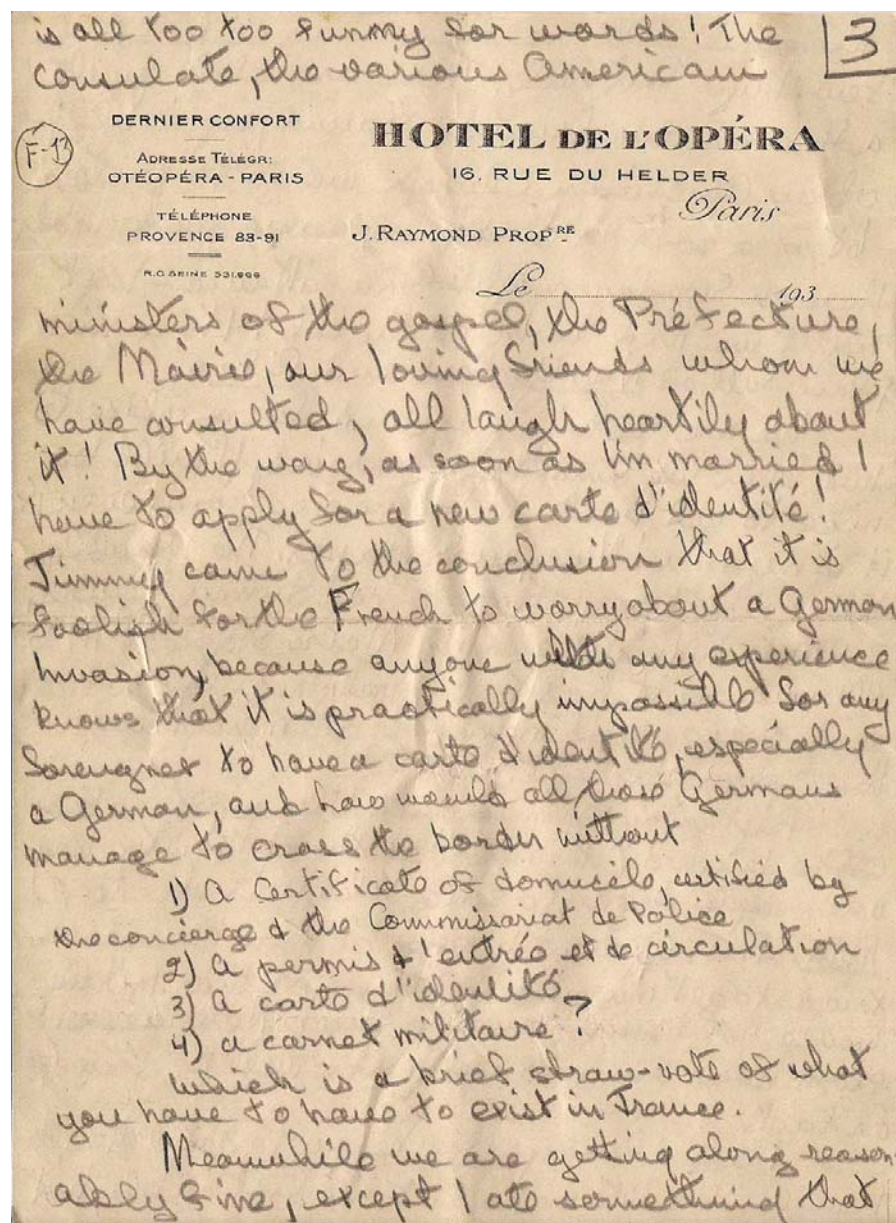 is all too too funny for words! The
3
consulate, the various American
DERNIER CONFORT
ADRESSE TÉLÉGR:
OTÉOPÉRA - PARIS
TÉLÉPHONE
PROVENCE 83-91
R.C. SEINE 531.966
F-13
HOTEL DE L'OPÉRA
16, RUE DU HELDER
Paris
J. RAYMOND PROPRE
Le 193
ministers of the gospel, the Préfecture,
the Mairie, our loving friends whom we
have consulted, all laugh heartily about
it! By the way, as soon as I'm married I
have to apply for a new carte d'identité!
Jimmy came to the conclusion that it is
foolish for the French to worry about a German
invasion, because anyone with any experience
knows that it is practically impossible for any
foreigner to have a carte d'identité, especially
a German, and how would all those Germans
manage to cross the border without
1) A Certificate of domicile, certified by
the concierge & the Commissariat de Police
2) A permis d'entrée et de circulation
3) A carte d'identité
4) a carnet militaire?
which is a brief straw-vote of what
you have to have to exist in France.
Meanwhile we are getting along reason-
ably fine, except I ate something that